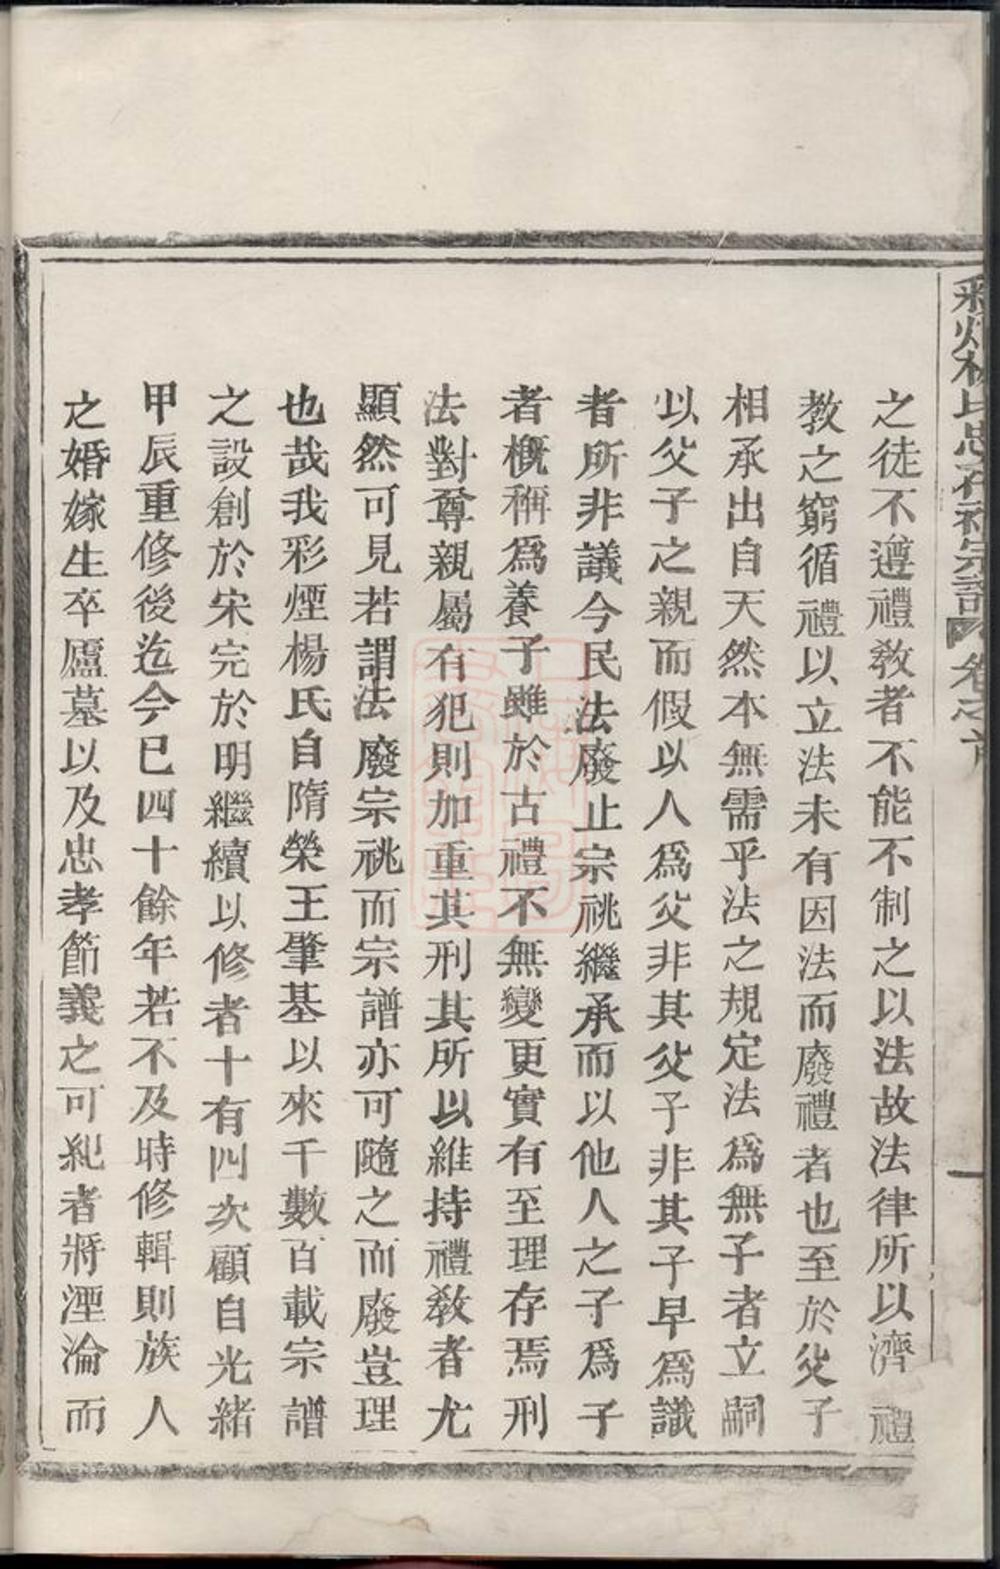 彩烟楊氏忠孝祠宗譜 卷之首 一
之徒不遵禮教者不能不制之以法故法律所以濟禮
教之窮循禮以立法未有因法而廢禮者也至於父子
相承出自天然本無需乎法之規定法為無子者立嗣
以父子之親而假以人為父非其父子非其子早為識
者所非議今民法廢止宗祧繼承而以他人之子為子
者概稱為養子雖於古禮不無變更實有至理存焉刑
法對尊親屬有犯則加重其刑其所以維持禮教者尤
顯然可見若謂法廢宗祧而宗譜亦可隨之而廢豈理
也哉我彩煙楊氏自隋榮王肇基以來千數百載宗譜
之設創於宋完於明繼續以修者十有四次顧自光緒
甲辰重修後迄今已四十餘年若不及時修輯則族人
之婚嫁生卒廬墓以及忠孝節義之可紀者將湮淪而